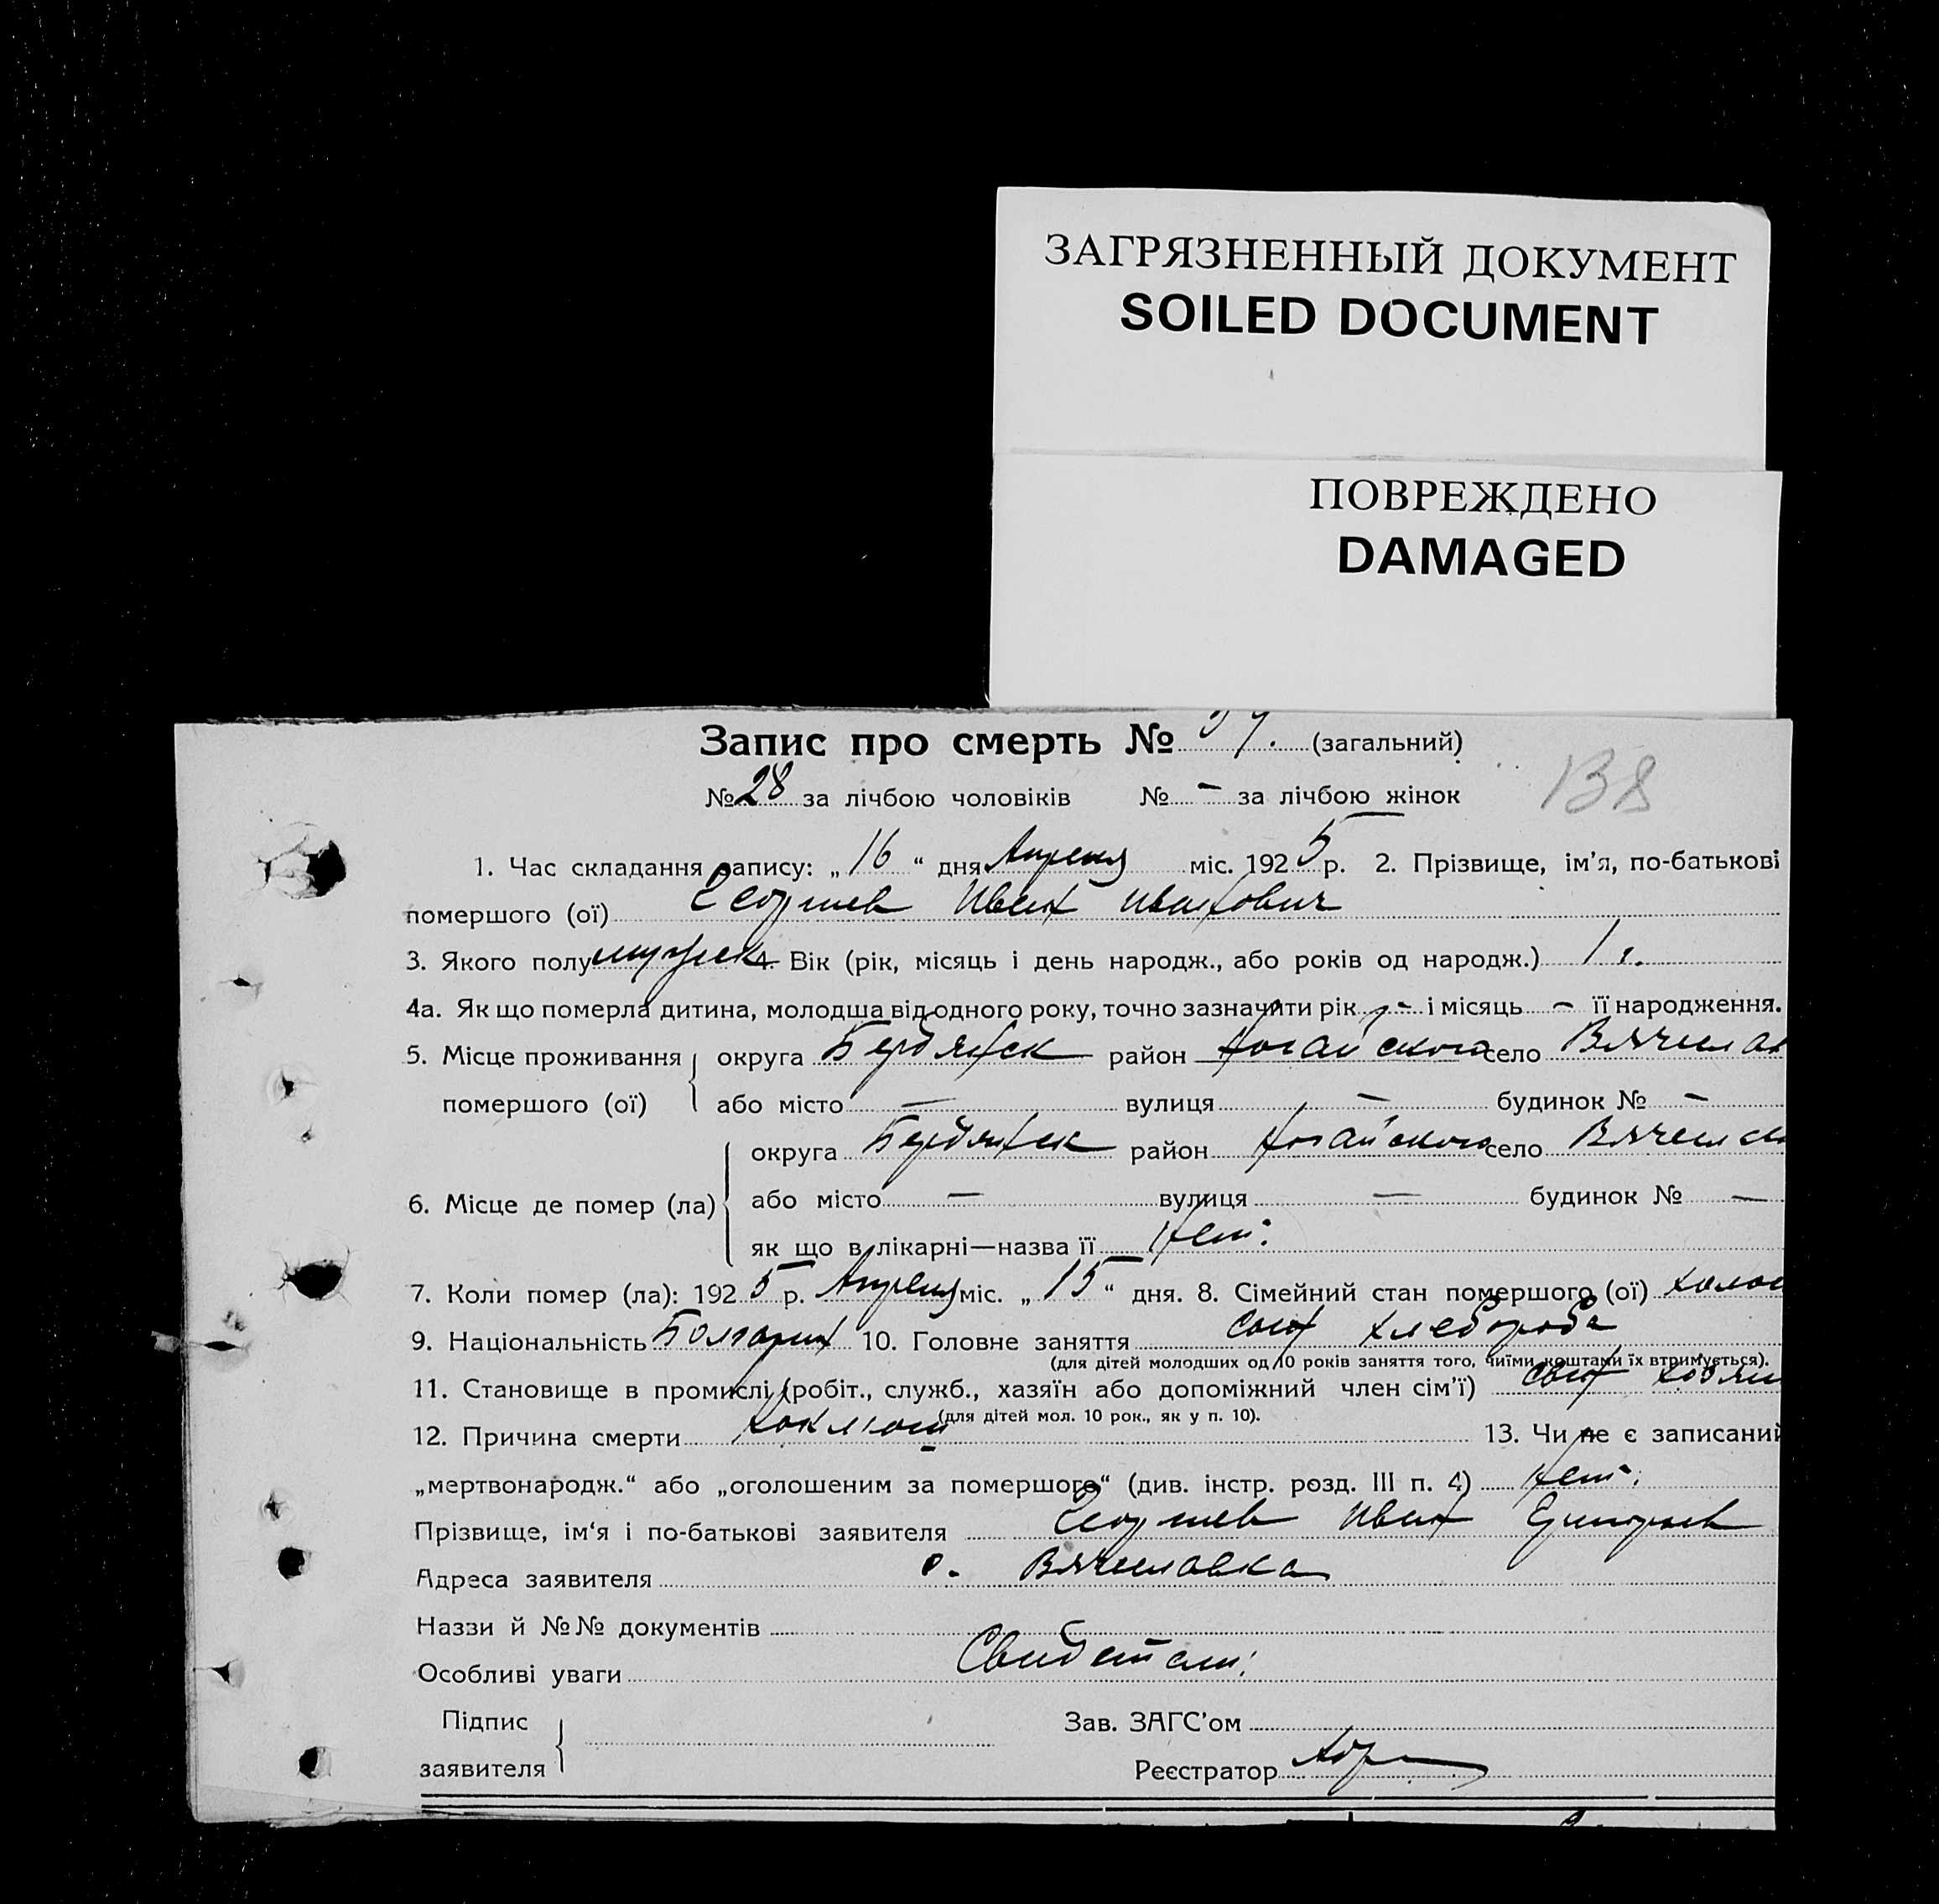 ЗАГРЯЗНЕННЫЙ ДОКУМЕНТ
SOILED DOCUMENT
ПОВРЕЖДЕНО
DAMAGED
Запис про смерть № (загальний)
138
№ 28 за лічбою чоловіків № – за лічбою жінок
1. Час складання запису: „ 16 “ дня Апреля міс. 1925 р. 2. Прізвище, ім’я, по-батькові
помершого (ої) Георгиев Иван Иванович
3. Якого полу мужск 4. Вік (рік, місяць і день народж., або років од народж.) 1 г.
4а. Як що померла дитина, молодша від одного року, точно зазначити рік – і місяць – її народження.
5. Місце проживання округа Бердянск район Ногайского село Вячеслав
помершого (ої) або місто – вулиця – будинок № –
округа Бердянск район Ногайского село Вячесла
6. Місце де помер (ла) або місто – вулиця – будинок № –
як що в лікарні—назва її Нет.
7. Коли помер (ла): 1925 р. Апреля міс. „ 15 “ дня. 8. Сімейний стан помершого (ої) холос
9. Національність Болгарин 10. Головне заняття сын хлебороба
(для дітей молодших од 10 років заняття того, чиїми коштами їх втримується).
11. Становище в промислі (робіт., служб., хазяїн або допоміжний член сім’ї) сын хозяи
(для дітей мол. 10 рок., як у п. 10).
12. Причина смерти Коклюш 13. Чи не є записаний
„мертвонародж.“ або „оголошеним за помершого“ (див. інстр. розд. III п. 4) Нет.
Прізвище, ім‘я і по-батькові заявителя Георгиев Иван
Адреса заявителя с. Вячеславка
Назви й №№ документів
Особливі уваги Свидетели:
Підпис Зав. ЗАГС’ом
заявителя Реєстратор